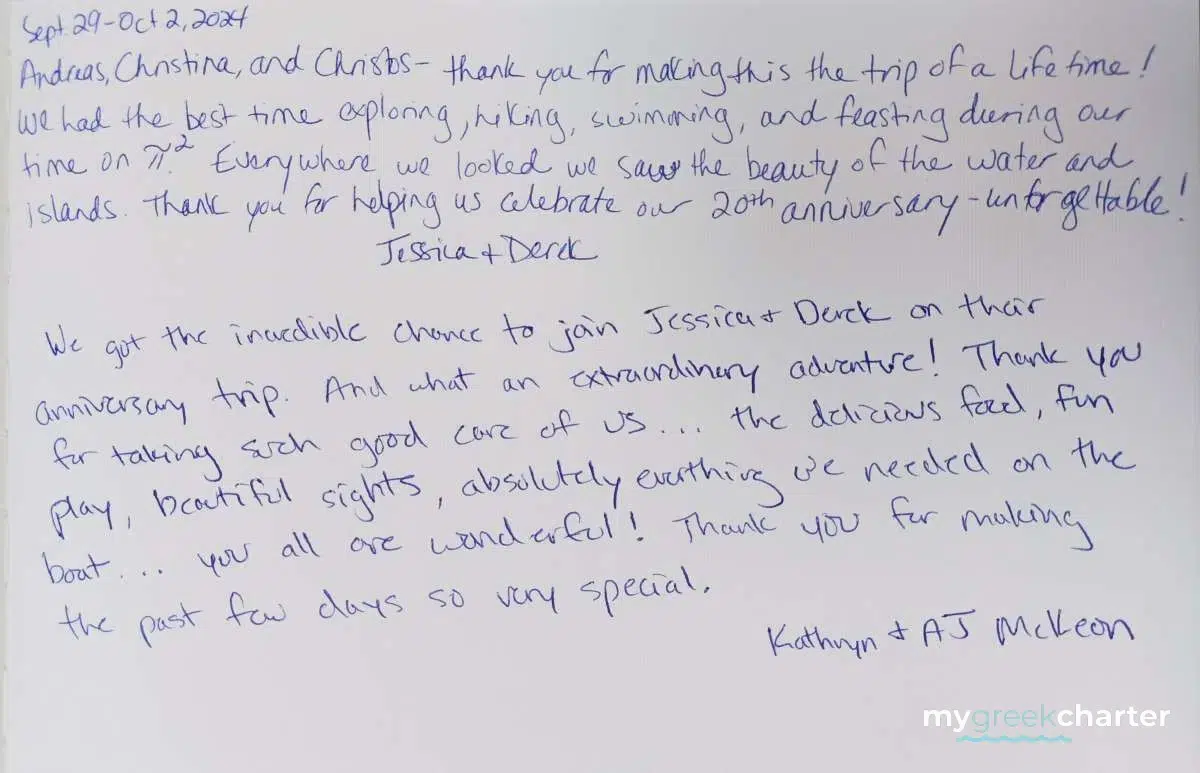 Sept. 29 - Oct 2, 2024
Andreas, Christina, and Christos - thank you for making this the trip of a lifetime!
We had the best time exploring, hiking, swimming, and feasting during our
time on π². Everywhere we looked we saw the beauty of the water and
islands. Thank you for helping us celebrate our 20th anniversary - unforgettable!
Jessica + Derek
We got the incredible chance to join Jessica + Derek on their
anniversary trip. And what an extraordinary adventure! Thank you
for taking such good care of us... the delicious food, fun
play, beautiful sights, absolutely everthing we needed on the
boat... you all are wonderful! Thank you for making
the past few days so very special.
Kathryn + AJ McKeon
mygreekcharter